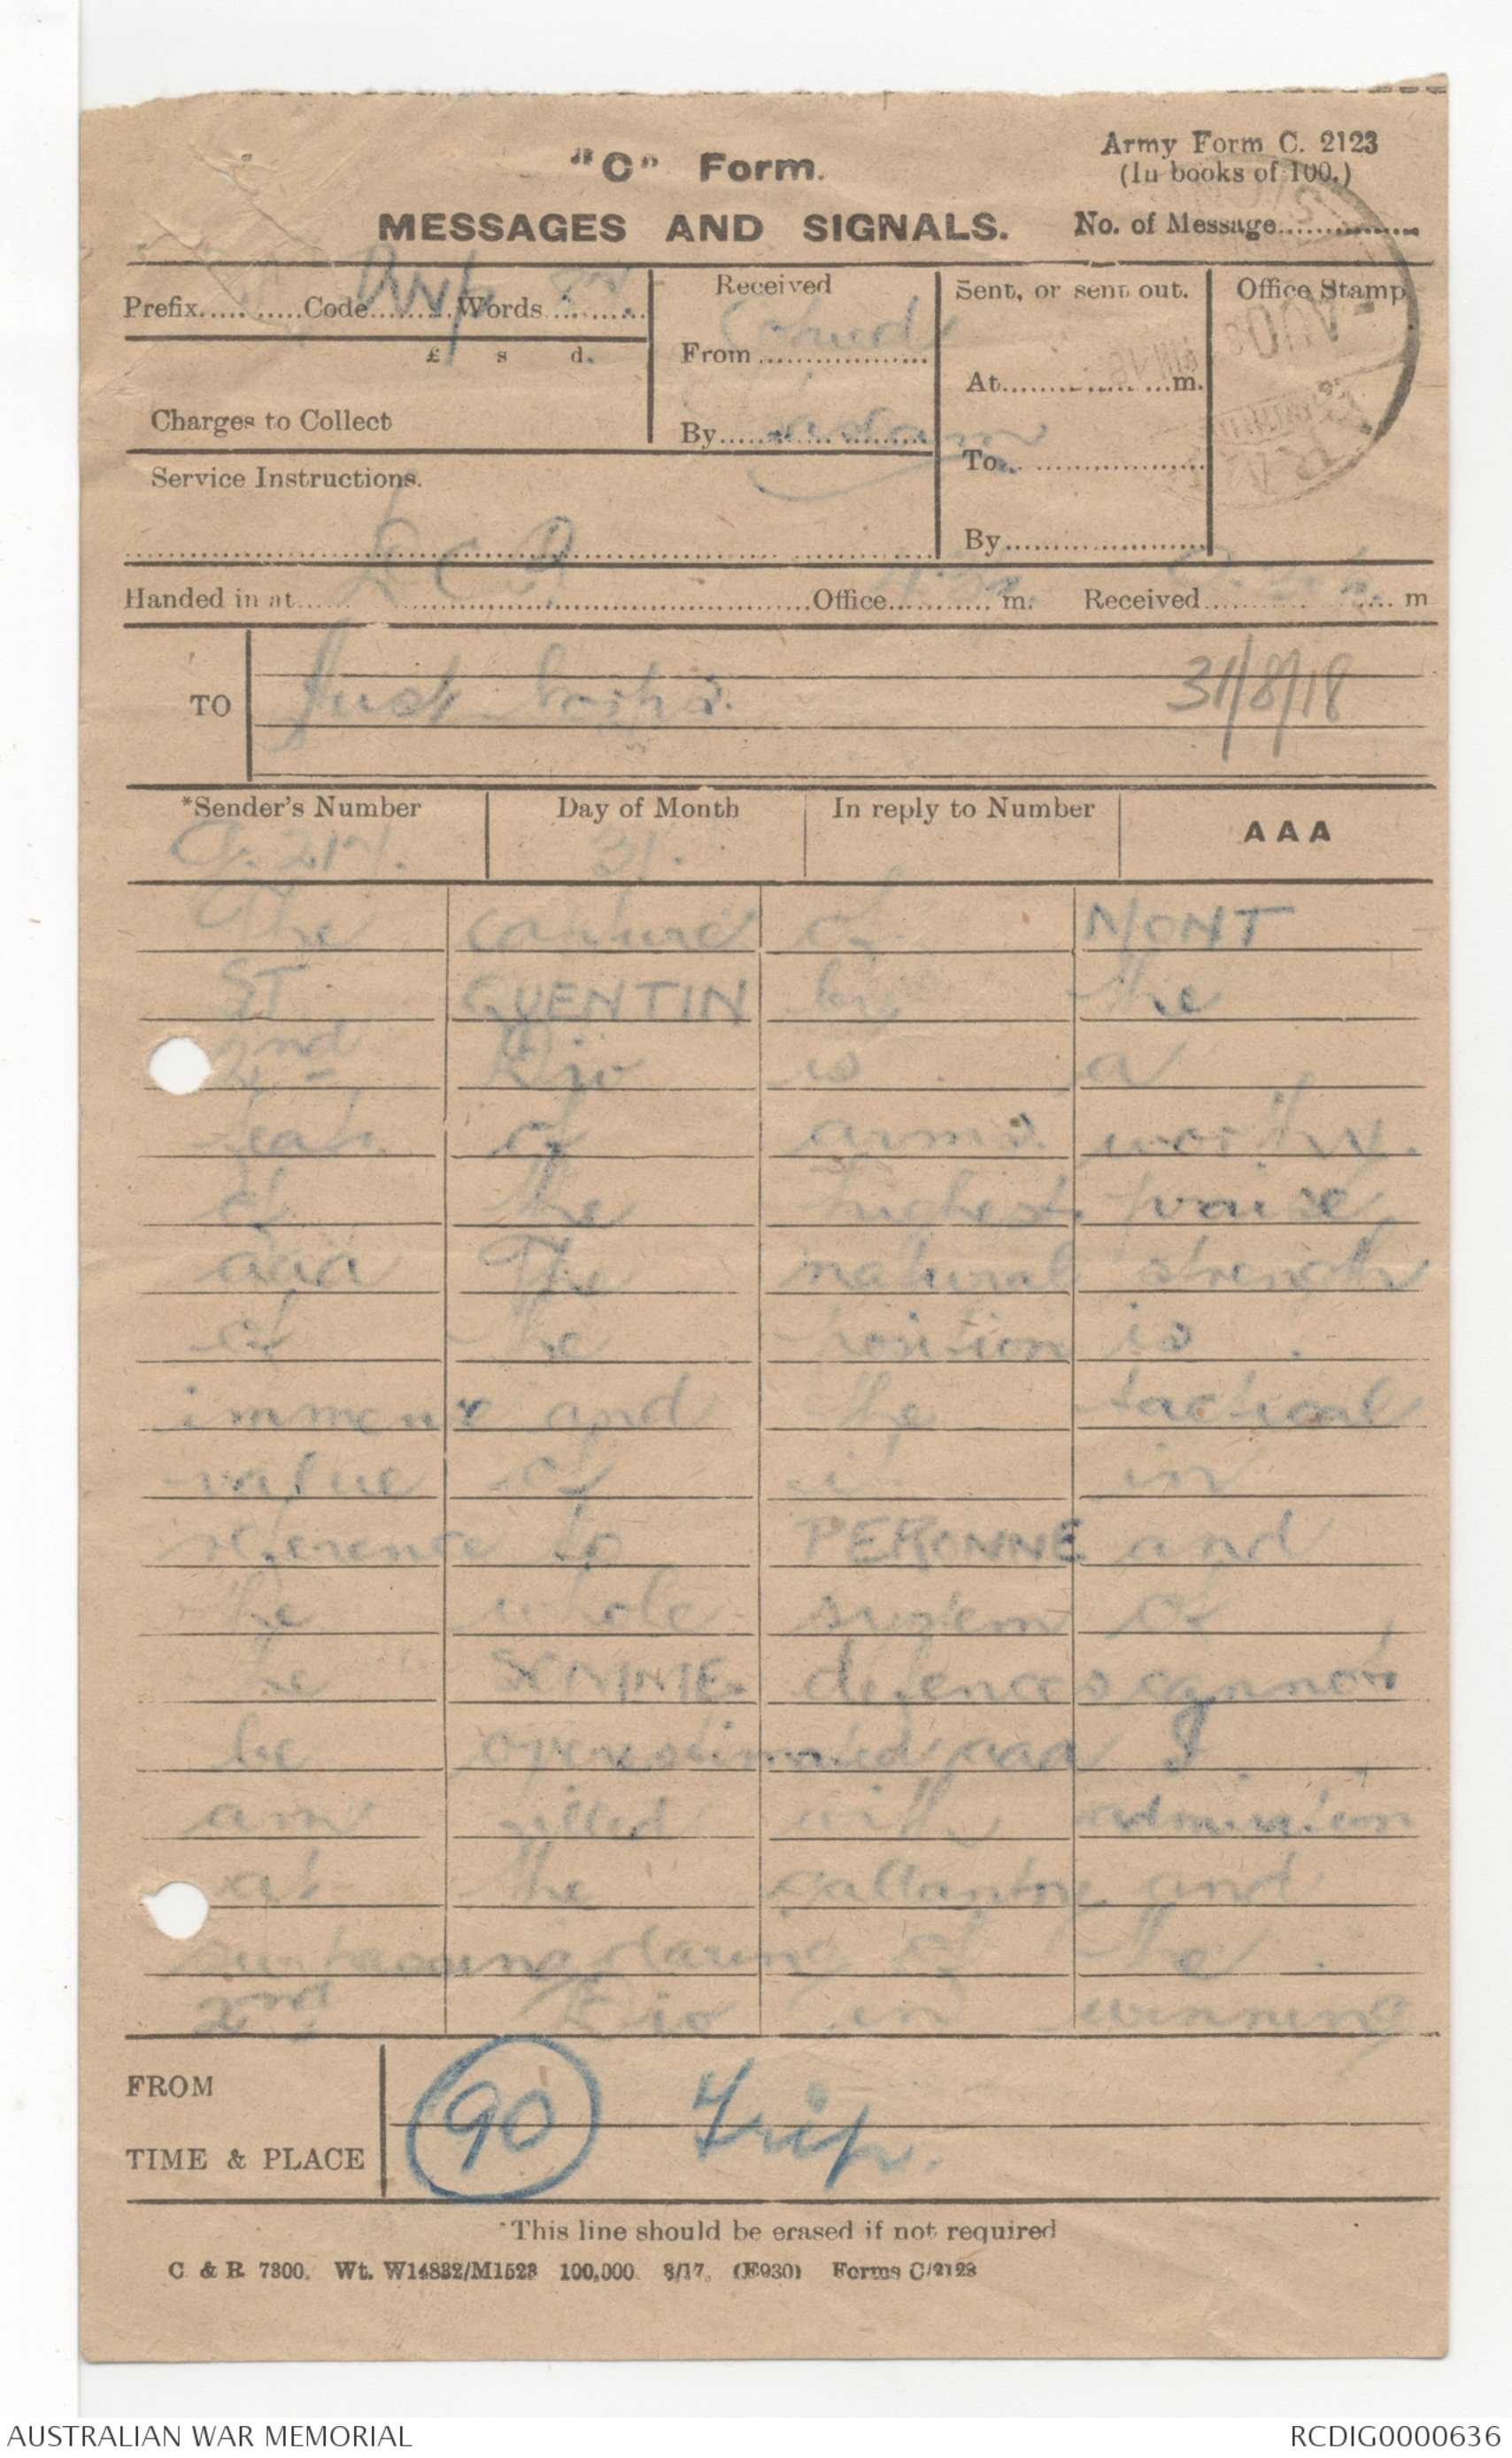 "C" Form.
Army Form C. 2123
(In books of 100.)
MESSAGES AND SIGNALS.
No. of Message
Prefix Code Words
Received
Sent, or sent out.
Office Stamp
£ s d.
From
At m.
Charges to Collect
By
To
Service Instructions.
By
Handed in at Office m. Received m
TO Aust Corps.
31/8/18
*Sender's Number
Day of Month
In reply to Number
AAA
G.217. 31.
The capture of MONT
ST QUENTIN by the
2nd Div is a
feat of arms worthy
of the highest praise
aaa The natural strength
of the position is
immense and the tactical
value of it in
reference to PERONNE and
the whole system of
the SOMME defences cannot
be overestimated aaa I
am filled with admiration
at the gallantry and
surpassing daring of the
2nd Div in winning
FROM
90
TIME & PLACE
*This line should be erased if not required
C & R 7300. Wt. W14832/M1523 100,000 8/17. (E930) Forms C/2123
AUSTRALIAN WAR MEMORIAL
RCDIG0000636